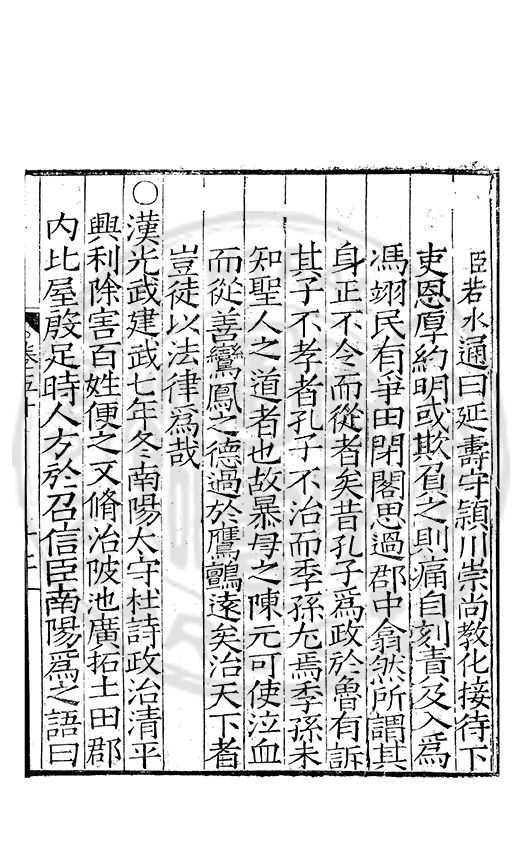 臣若水通曰延壽守潁川崇尚教化接待下
吏恩厚約明或欺負之則痛自刻責及入爲
馮翊民有爭田閉閤思過郡中翕然所謂其
身正不令而從者矣昔孔子爲政於魯有訴
其子不孝者孔子不治而季孫尤焉季孫未
知聖人之道者也故暴母之陳元可使泣血
而從善鸞鳳之德過於鷹鸇遠矣治天下者
豈徒以法律爲哉
○漢光武建武七年冬南陽太守杜詩政治清平
興利除害百姓便之又脩治陂池廣拓土田郡
内比屋殷足時人方於召信臣南陽爲之語曰
卷五十